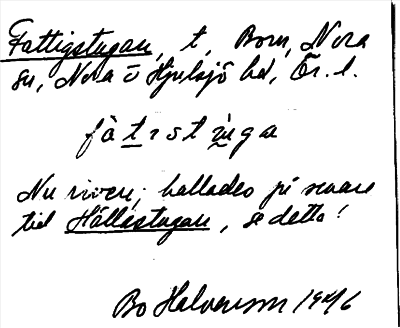 Fattigstugan, t, Born, Nora
sn, Nora o Hjulsjö hd, Ör. l.
fàtistùga
Nu riven; kallades på senare
tid Hällåstugan, se detta!
Bo Halvarsson 1946